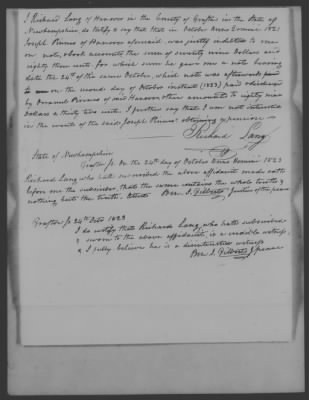 I Richard Lang of Hanover in the County of Grafton in the State of
Newhampshire, do testify & say that in October Anno Domini 1821
Joseph Prince of Hanover aforesaid was justly indebted to me
on note, & book accounts the sum of seventy nine Dollars and
eighty three cents for which sum he gave me a note bearing
date the 24th of the same October, which note was afterwards
on the second day of October instant (1823) paid & discharged
by Prince of said Hanover, & then amounted to eighty nine
Dollars & thirty two cents. I further say that I am not interested
in the event of the said Joseph Prince obtaining a pension
Richard Lang
State of Newhampshire
Grafton ss. On the 24th day of October Anno Domini 1823
Richard Lang who hath subscribed the above affidavit made oath
before me the subscriber, that the same contains the whole truth &
nothing but the truth. Attest Ben J. Gilbert Justice of the peace
Grafton ss 24th Octo 1823
I do certify that Richard Lang who hath subscribed
& sworn to the above affidavit, is a credible witness,
& I fully believe he is a disinterested witness
Ben J. Gilbert J. peace